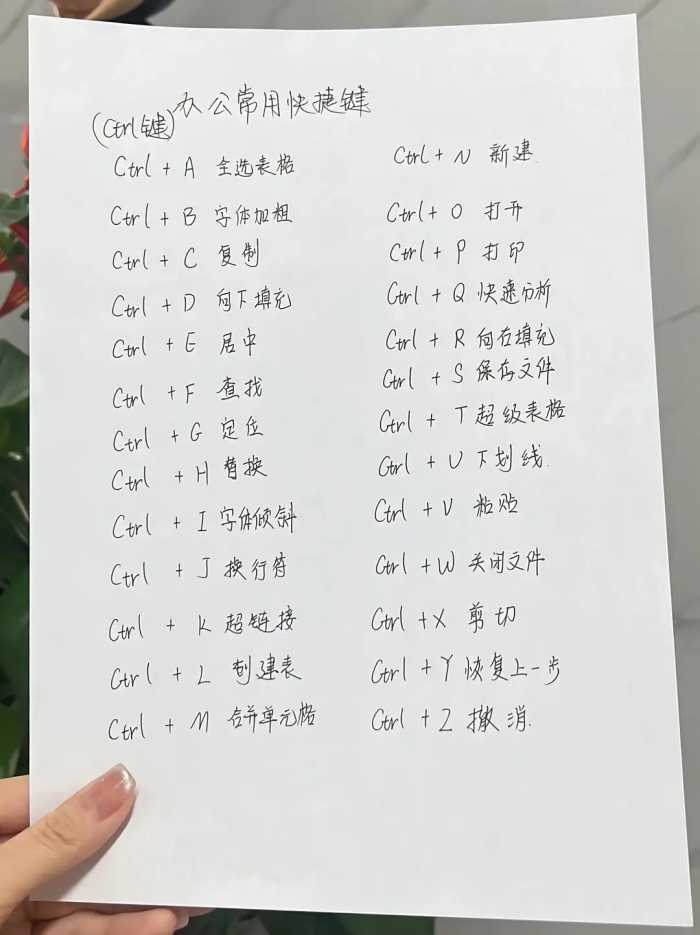 办公常用快捷键
(Ctrl键)
Ctrl + A 全选表格
Ctrl + B 字体加粗
Ctrl + C 复制
Ctrl + D 向下填充
Ctrl + E 居中
Ctrl + F 查找
Ctrl + G 定位
Ctrl + H 替换
Ctrl + I 字体倾斜
Ctrl + J 换行符
Ctrl + K 超链接
Ctrl + L 创建表
Ctrl + M 合并单元格
Ctrl + N 新建.
Ctrl + O 打开
Ctrl + P 打印
Ctrl + Q 快速分析
Ctrl + R 向右填充
Ctrl + S 保存文件
Ctrl + T 超级表格
Ctrl + U 下划线.
Ctrl + V 粘贴
Ctrl + W 关闭文件
Ctrl + X 剪切
Ctrl + Y 恢复上一步
Ctrl + Z 撤消.